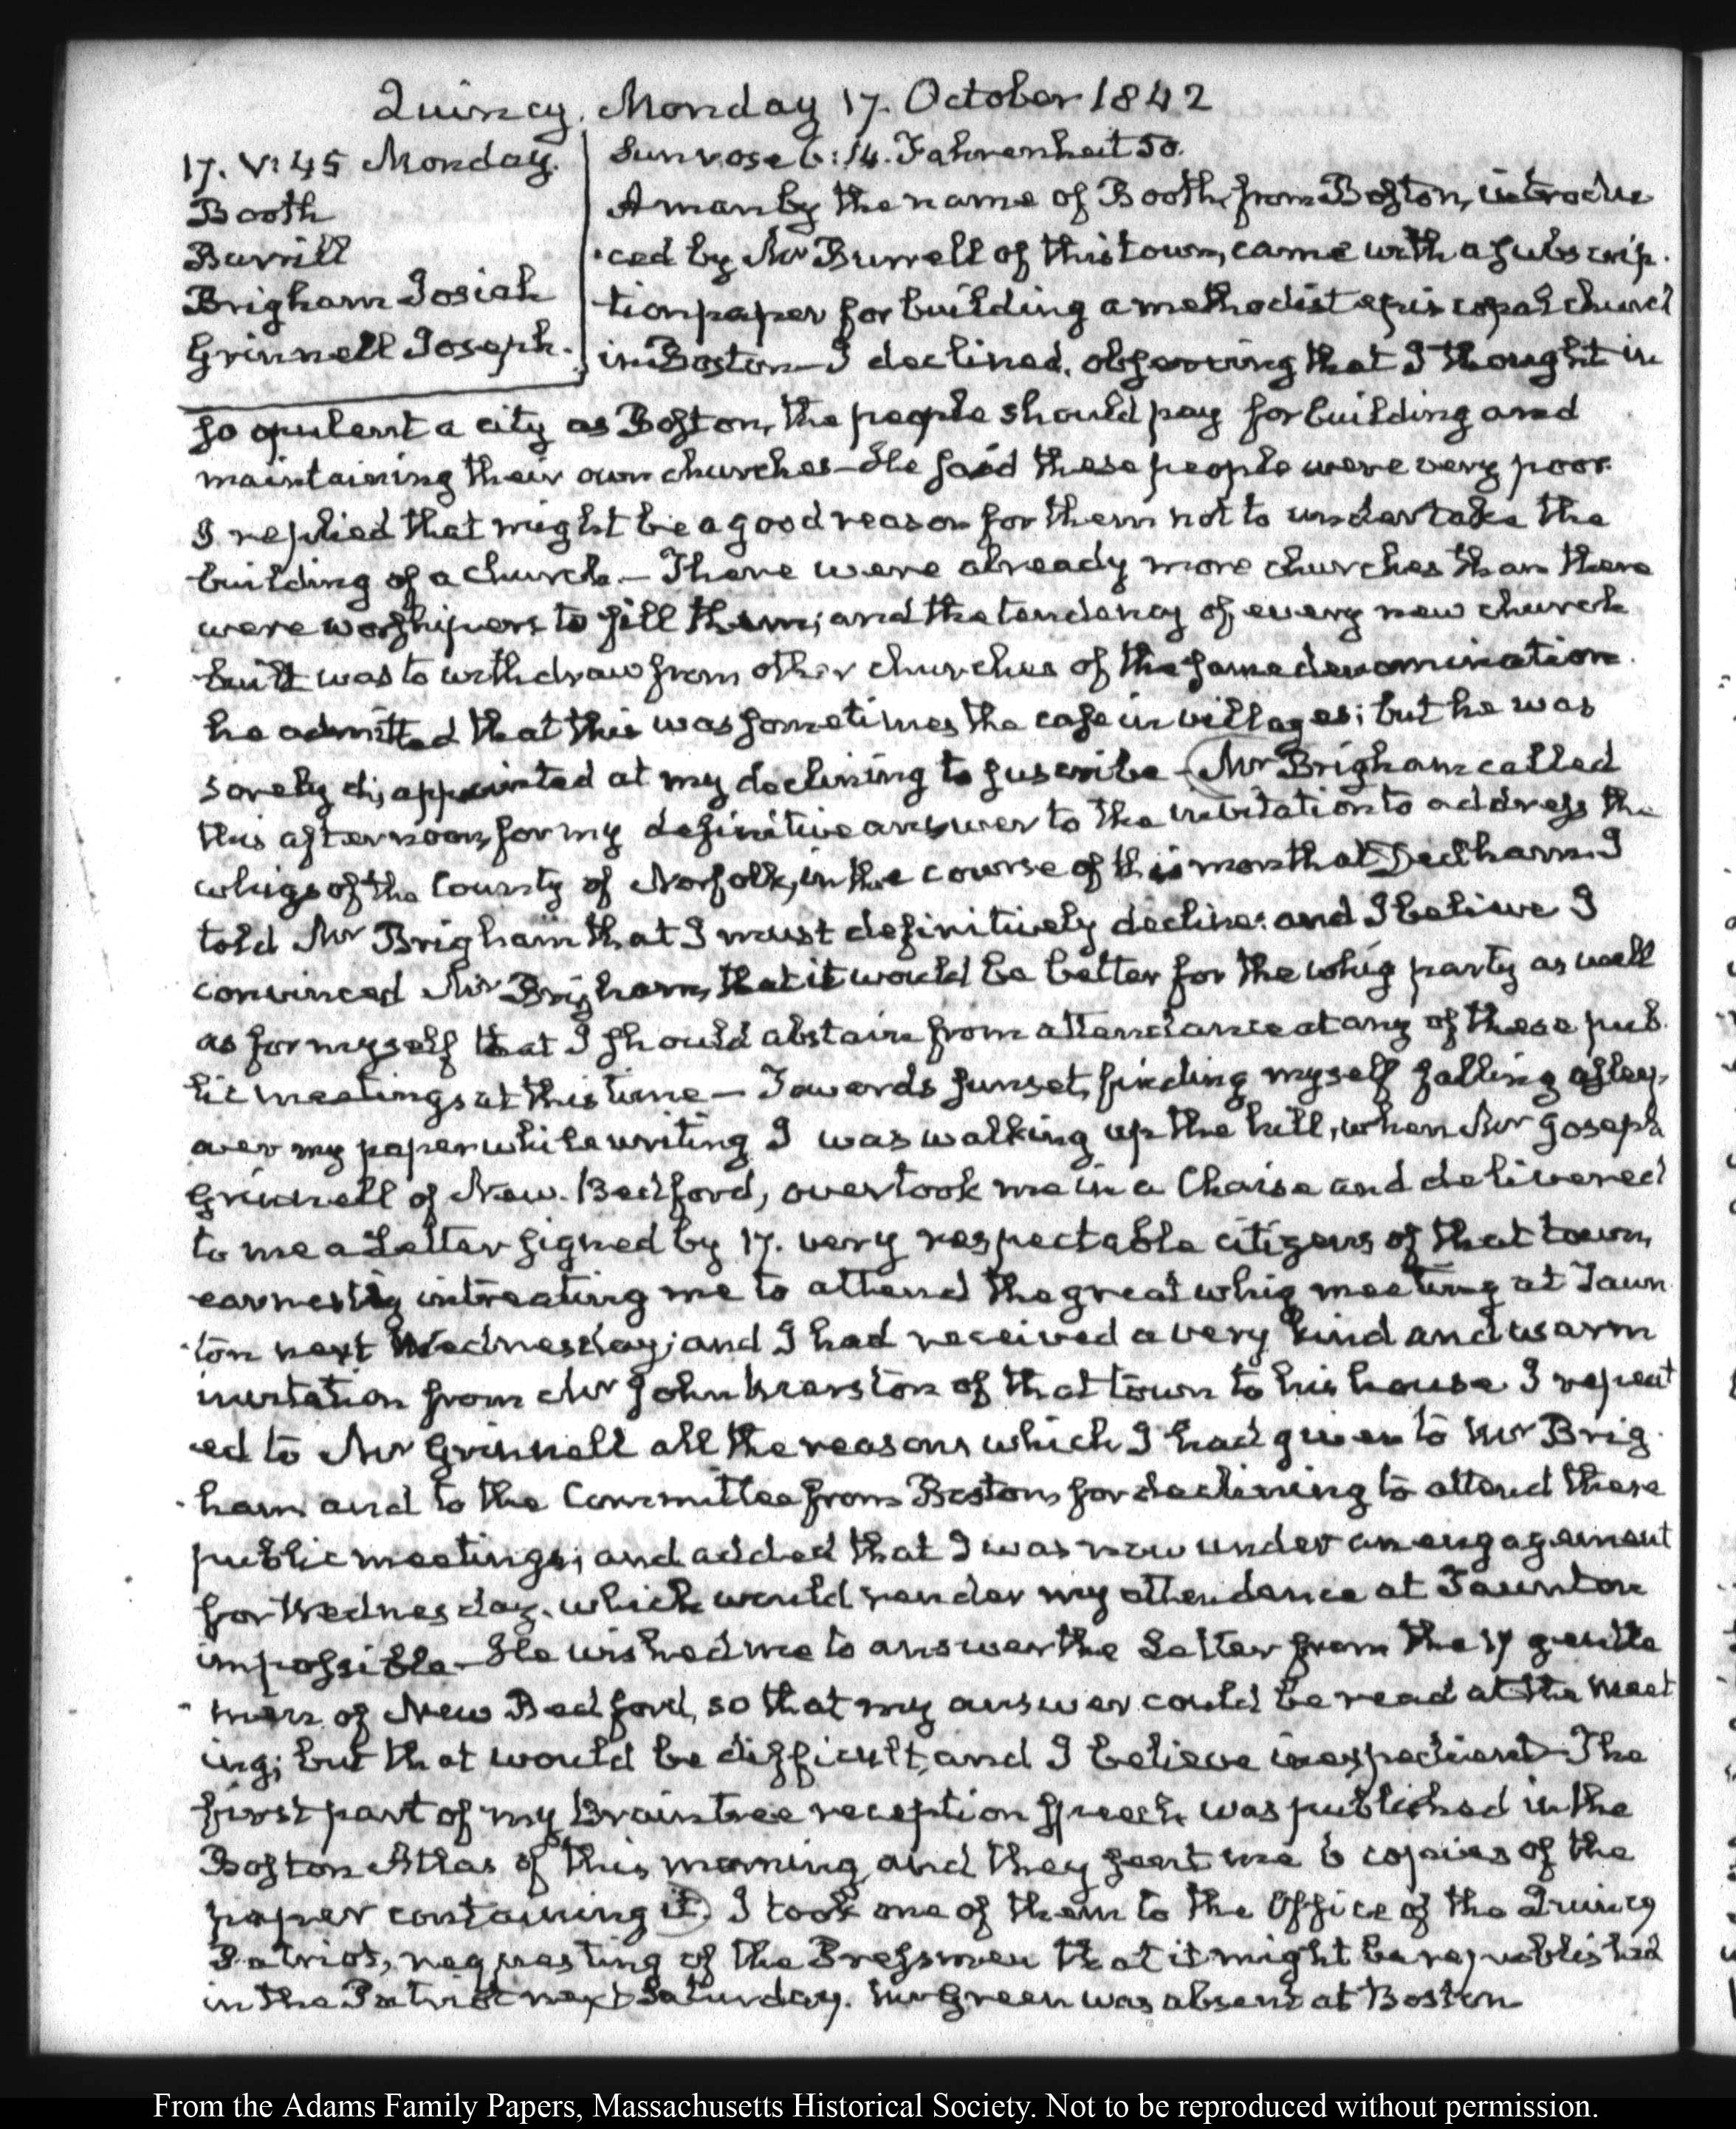 Quincy. Monday 17. October 1842
17. V:45 Monday.
Booth
Burrill
Brigham Josiah
Grinnell Joseph.
Sun rose 6:14. Fahrenheit 50.
A man by the name of Booth, from Boston, introdu
-ced by Mr Burrell of this town, came with a subscrip-
tion paper for building a methodist episcopal church
in Boston—I declined, observing that I thought in
so opulent a city as Boston, the people should pay for building and
maintaining their own churches—He said these people were very poor.
I replied that might be a good reason for them not to undertake the
building of a church.—There were already more churches than there
were worshipers to fill them; and the tendency of every new church
built was to withdraw from other churches of the same denomination.
he admitted that this was sometimes the case in villages; but he was
sorely disappointed at my declining to suscribe—Mr Brigham called
this afternoon, for my definitive answer to the invitation to address the
whigs of the County of Norfolk, in the course of this month at Dedham. I
told Mr Brigham that I must definitively decline: and I believe I
convinced Mr Brigham, that it would be better for the whig party as well
as for myself that I should abstain from attendance at any of these pub-
lic meetings at this time—Towards sunset, finding myself falling asleep,
over my paper while writing I was walking up the hill, when Mr Joseph
Grinnell of New-Bedford, overtook me in a Chaise and delivered
to me a Letter signed by 17. very respectable citizens of that town,
earnestly intreating me to attend the great whig meeting at Taun
-ton next Wednesday; and I had received a very kind and warm
invitation from Mr John Marston of that town to his house. I repeat
-ed to Mr Grinnell all the reasons which I had given to Mr Brig-
-ham and to the Committee from Boston, for declining to attend these
public meetings; and added that I was now under an engagement
for Wednesday, which would render my attendance at Taunton
impossible—He wished me to answer the Letter from the 17 gentle
-men of New Bedford, so that my answer could be read at the meet
ing; but that would be difficult, and I believe inexpedient—The
first part of my Braintree reception speech was published in the
Boston Atlas of this morning, and they sent me 6 copies of the
paper containing it. I took one of them to the Office of the Quincy
Patriot, requesting of the Pressmen that it might be republished
in the Patriot next Saturday. Mr Green was absent at Boston
From the Adams Family Papers, Massachusetts Historical Society. Not to be reproduced without permission.